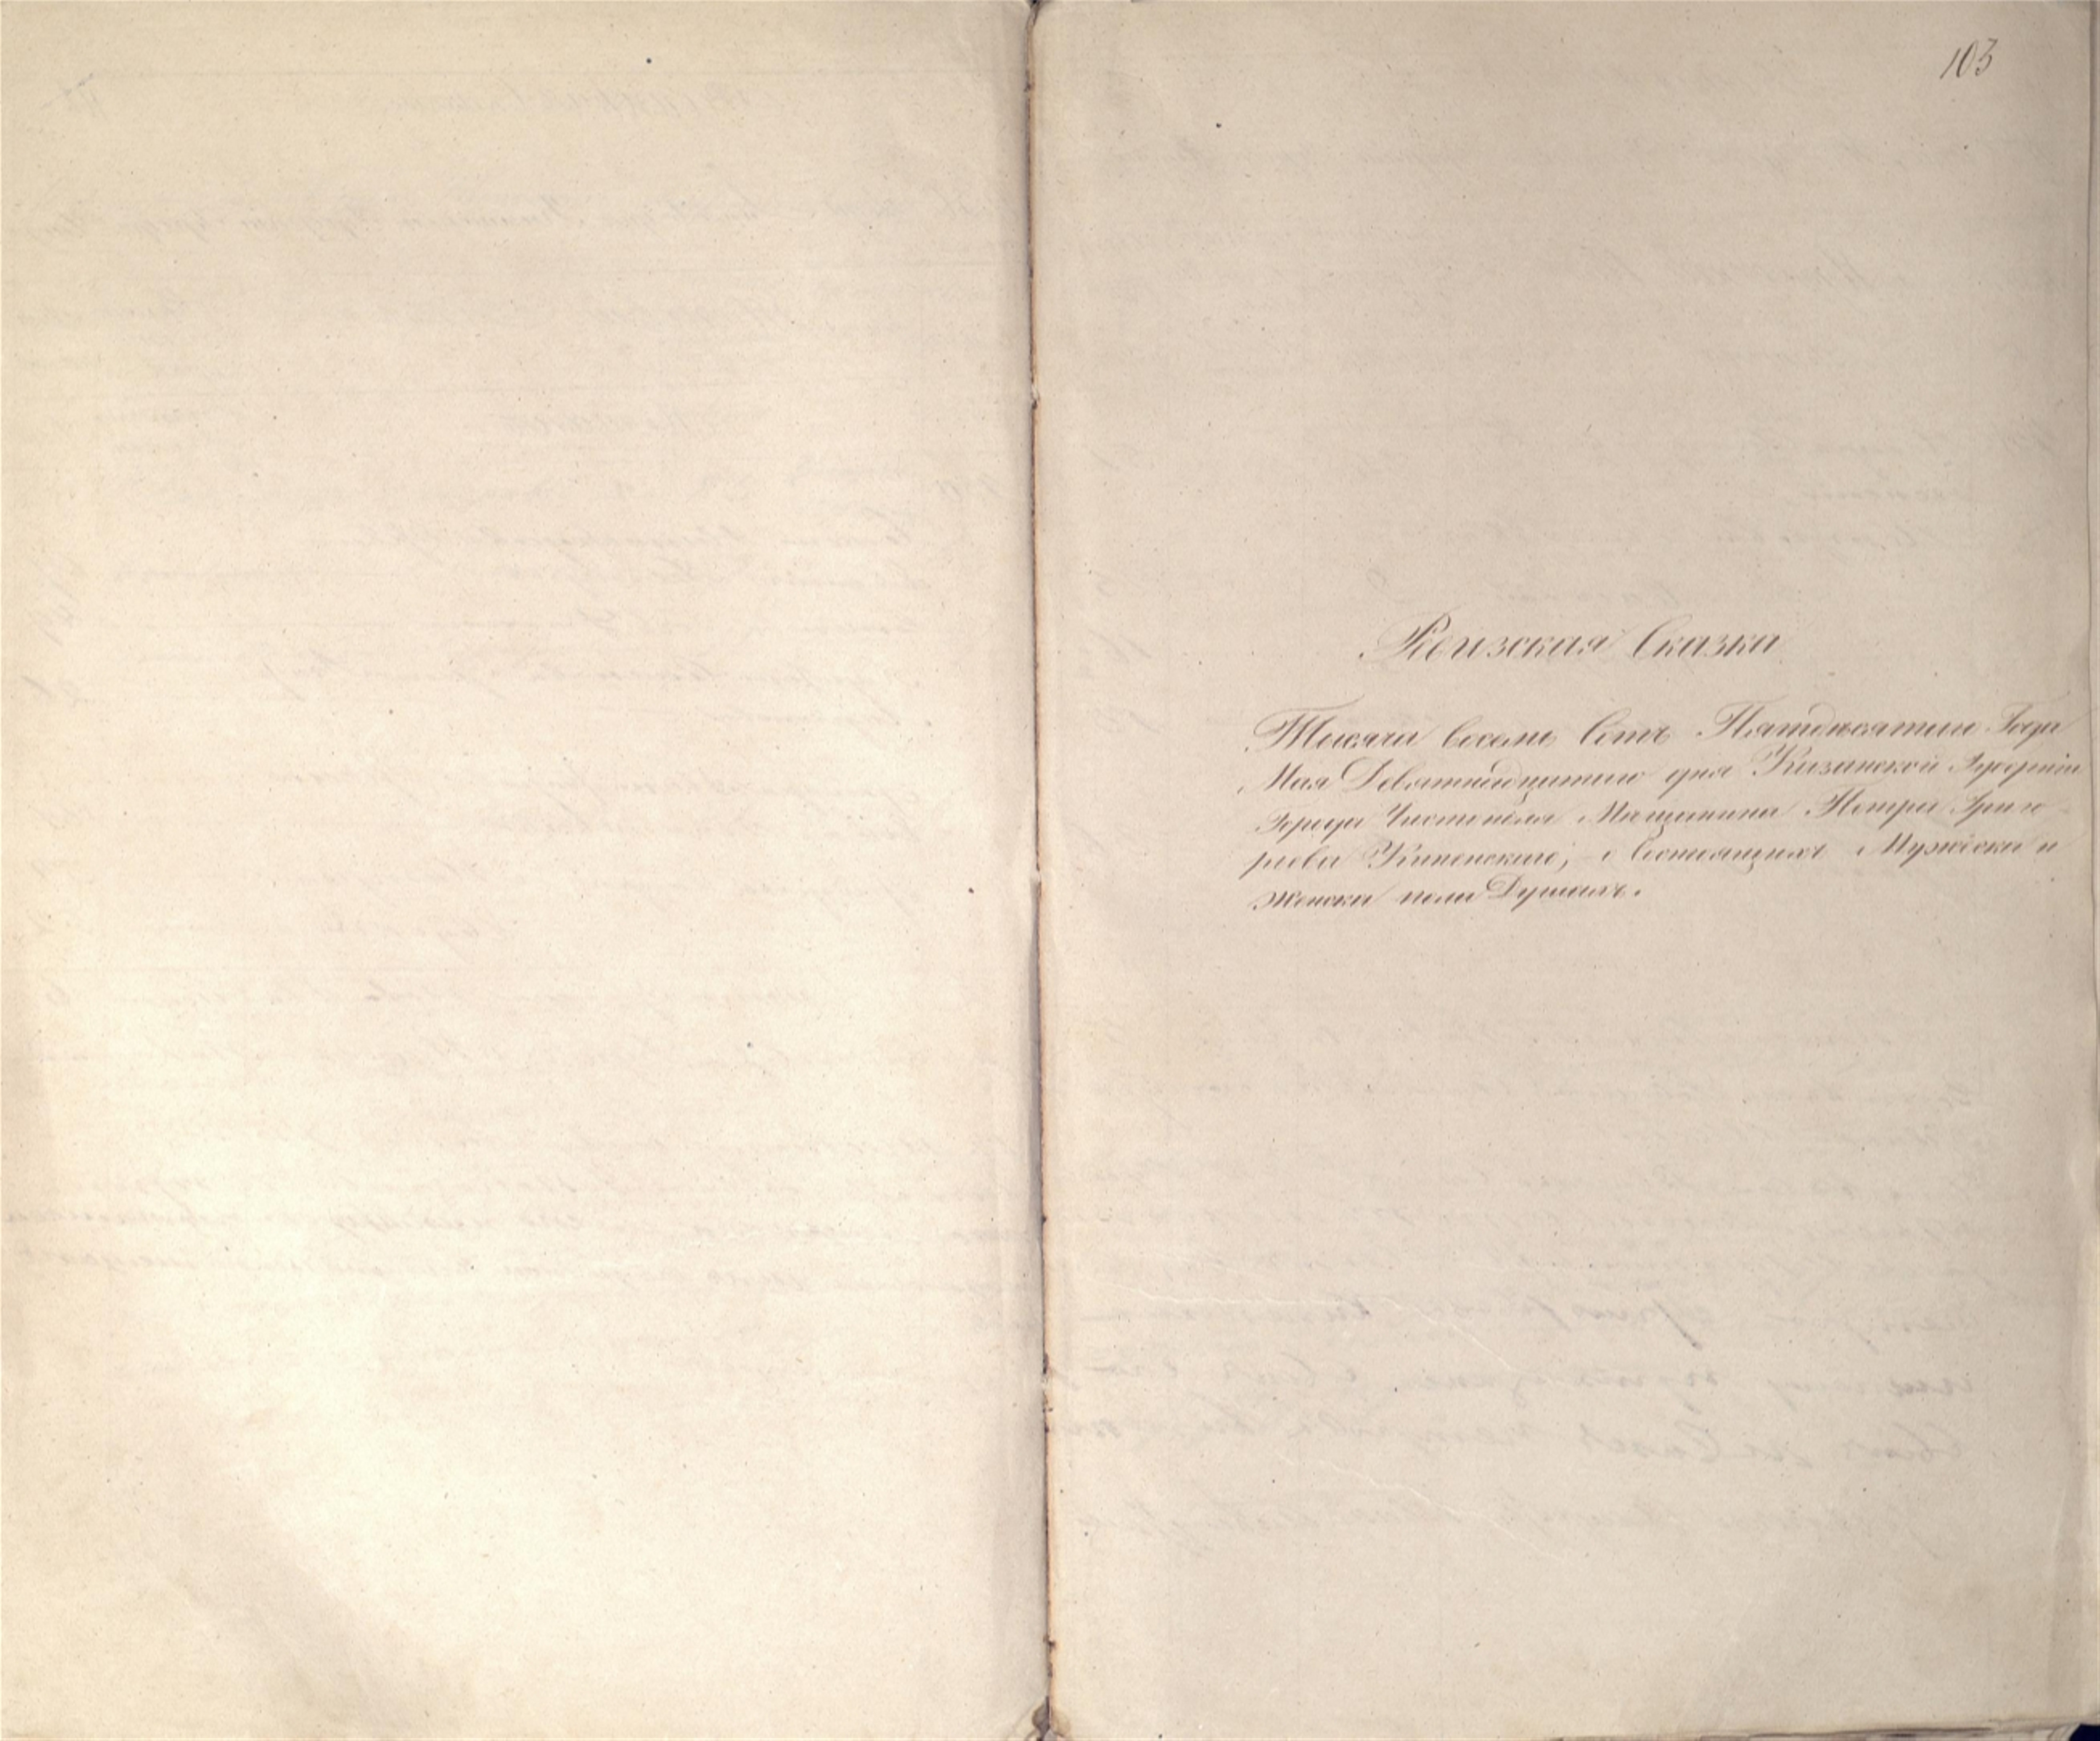 103
Ревизская Сказка
Тысяча восемь Сотъ Пятдесятаго Года
Мая Девятнадцатаго дня Казанской Губерніи
Города Чистополя Мещанина Петра Григо-
рьева о Состоящихъ Мужеска и
Женска пола Душахъ.